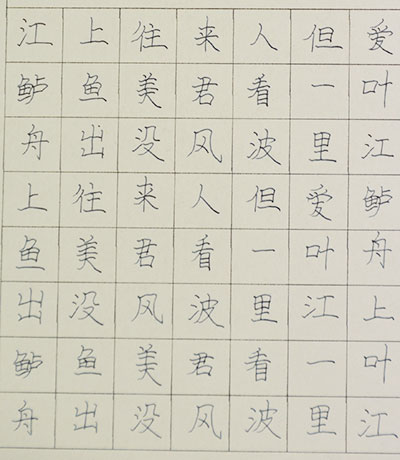 江上往来人但爱
鲈鱼美君看一叶
舟出没风波里江
上往来人但爱鲈
鱼美君看一叶舟
出没风波里江上
鲈鱼美君看一叶
舟出没风波里江